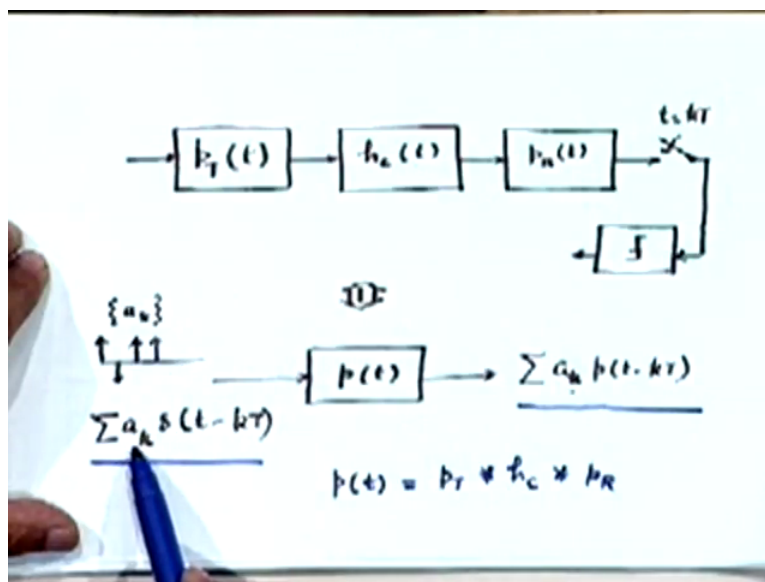 t = kT
p_T(t) h_c(t) p_R(t)
{a_k}
p(t) ∑ a_k p(t - kT)
∑ a_k δ(t - kT)
p(t) = p_T * h_c * p_R